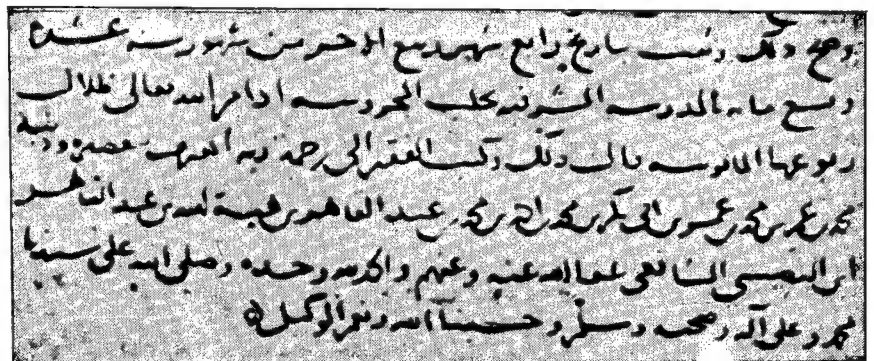 وصح ذلك وثبت بتاريخ رابع شهر ربيع الاخر من شهور سنة عشرة
وتسع مايه بالمدرسه الشرفيه بحلب المحروسه ادام الله تعالى ظلال
ربوعها المانوسه قال ذلك وكتب الفقير الى رحمة ربه المعترف
محمد بن عمر بن محمد بن عمر بن ابي بكر بن محمد بن احمد بن محمد بن عبد القاهر بن هبة الله بن عبد القاهر
ابن النصيبي الشافعي عفا الله عنه وعنهم والحمد لله وحده وصلى الله على سيدنا
محمد وعلى آله وصحبه وسلم وحسبنا الله ونعم الوكيل